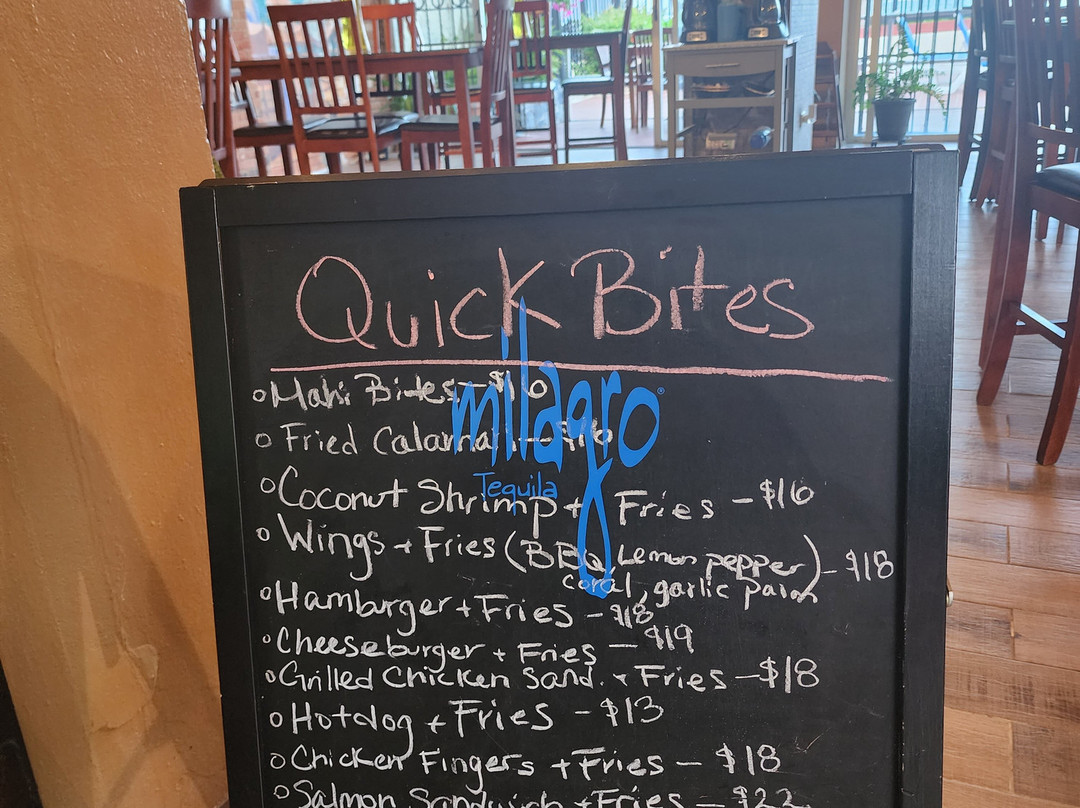 Quick Bites
milagro
Tequila
Mahi Bites - $16
Fried Calamari - $16
Coconut Shrimp + Fries - $16
Wings + Fries (BBQ, Lemon pepper) - $18
coral, garlic parm
Hamburger + Fries - $18
Cheeseburger + Fries - $19
Grilled Chicken Sand. + Fries - $18
Hotdog + Fries - $13
Chicken Fingers + Fries - $18
Salmon Sandwich + Fries - $22